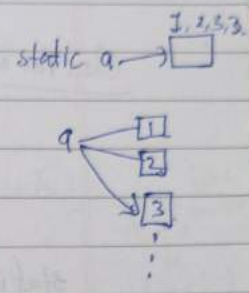 1, 2, 3, 3.
static a
a
1
2
3